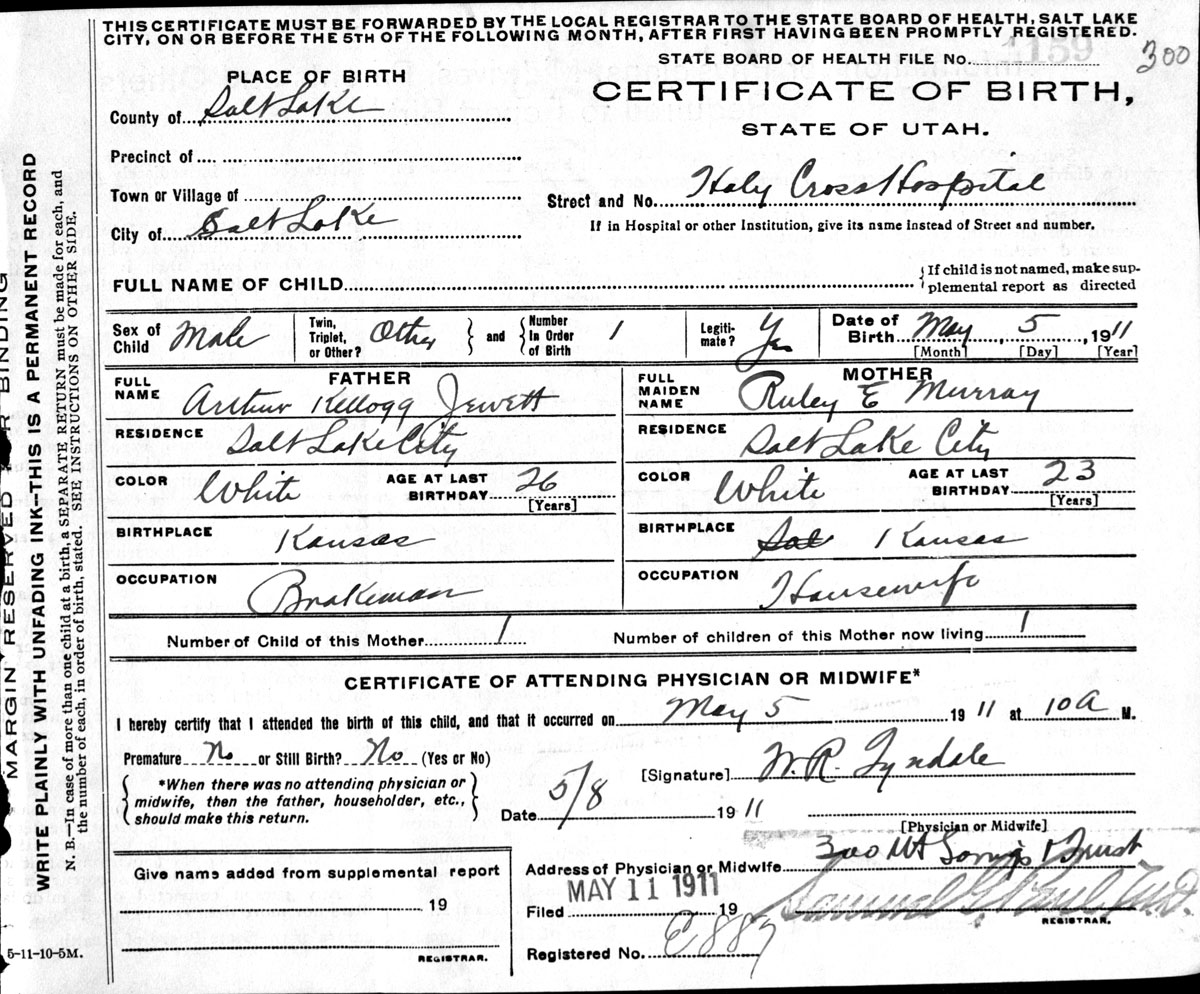 THIS CERTIFICATE MUST BE FORWARDED BY THE LOCAL REGISTRAR TO THE STATE BOARD OF HEALTH, SALT LAKE
CITY, ON OR BEFORE THE 5TH OF THE FOLLOWING MONTH, AFTER FIRST HAVING BEEN PROMPTLY REGISTERED.
STATE BOARD OF HEALTH FILE No. 1159
300
PLACE OF BIRTH
CERTIFICATE OF BIRTH,
STATE OF UTAH.
County of Salt Lake
Precinct of
Town or Village of
Street and No. Holy Cross Hospital
City of Salt Lake
If in Hospital or other Institution, give its name instead of Street and number.
FULL NAME OF CHILD
{If child is not named, make sup-
plemental report as directed
Sex of Child Male
Twin, Triplet, or Other? Other } and { Number In Order of Birth 1
Legiti-mate? Yes
Date of Birth May 5, 1911
[Month] [Day] [Year]
FATHER
MOTHER
FULL NAME Arthur Kellogg Jewett
FULL MAIDEN NAME Ruley E Murray
RESIDENCE Salt Lake City
RESIDENCE Salt Lake City
COLOR White AGE AT LAST BIRTHDAY 26 [Years]
COLOR White AGE AT LAST BIRTHDAY 23 [Years]
BIRTHPLACE Kansas
BIRTHPLACE Sal Kansas
OCCUPATION Brakeman
OCCUPATION Housewife
Number of Child of this Mother 1
Number of children of this Mother now living 1
CERTIFICATE OF ATTENDING PHYSICIAN OR MIDWIFE*
I hereby certify that I attended the birth of this child, and that it occurred on May 5 1911 at 10a M.
Premature No or Still Birth? No (Yes or No)
[Signature] W. R. Tyndale
{ *When there was no attending physician or
midwife, then the father, householder, etc.,
should make this return. }
Date 5/8 1911
[Physician or Midwife]
Give name added from supplemental report
19
REGISTRAR.
Address of Physician or Midwife 300
MAY 11 1911
Filed 19
Samuel G. Paul M.D.
REGISTRAR.
Registered No. E 887
5-11-10-5M.
MARGIN RESERVED FOR BINDING
WRITE PLAINLY WITH UNFADING INK—THIS IS A PERMANENT RECORD
N. B.—In case of more than one child at a birth, a SEPARATE RETURN must be made for each, and
the number of each, in order of birth, stated. SEE INSTRUCTIONS ON OTHER SIDE.